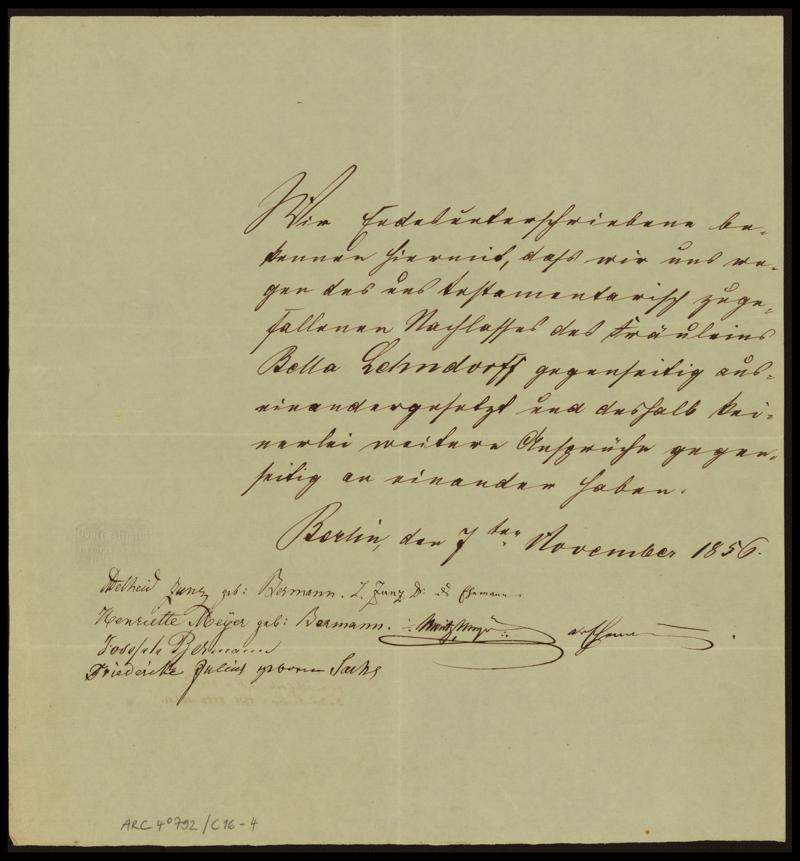 Wir Endesunterschriebene be-
kennen hiermit, daſs wir uns we-
gen des uns testamentarisch zuge-
fallenen Nachlasses des Fräuleins
Bella Lehndorff gegenseitig aus-
einandergesetzt und deshalb kei-
nerlei weitere Ansprüche gegen-
seitig an einander haben.
Berlin, den 7ten November 1856.
Adelheid Zunz geb: Bermann. L. Zunz Dr als Ehemann.
Henriette Meyer geb: Bermann. Moritz Meyer als Ehemann.
Joseph Bermann
Friedericke Julius geboren Sachs
ARC 4° 792 / C 16 - 4